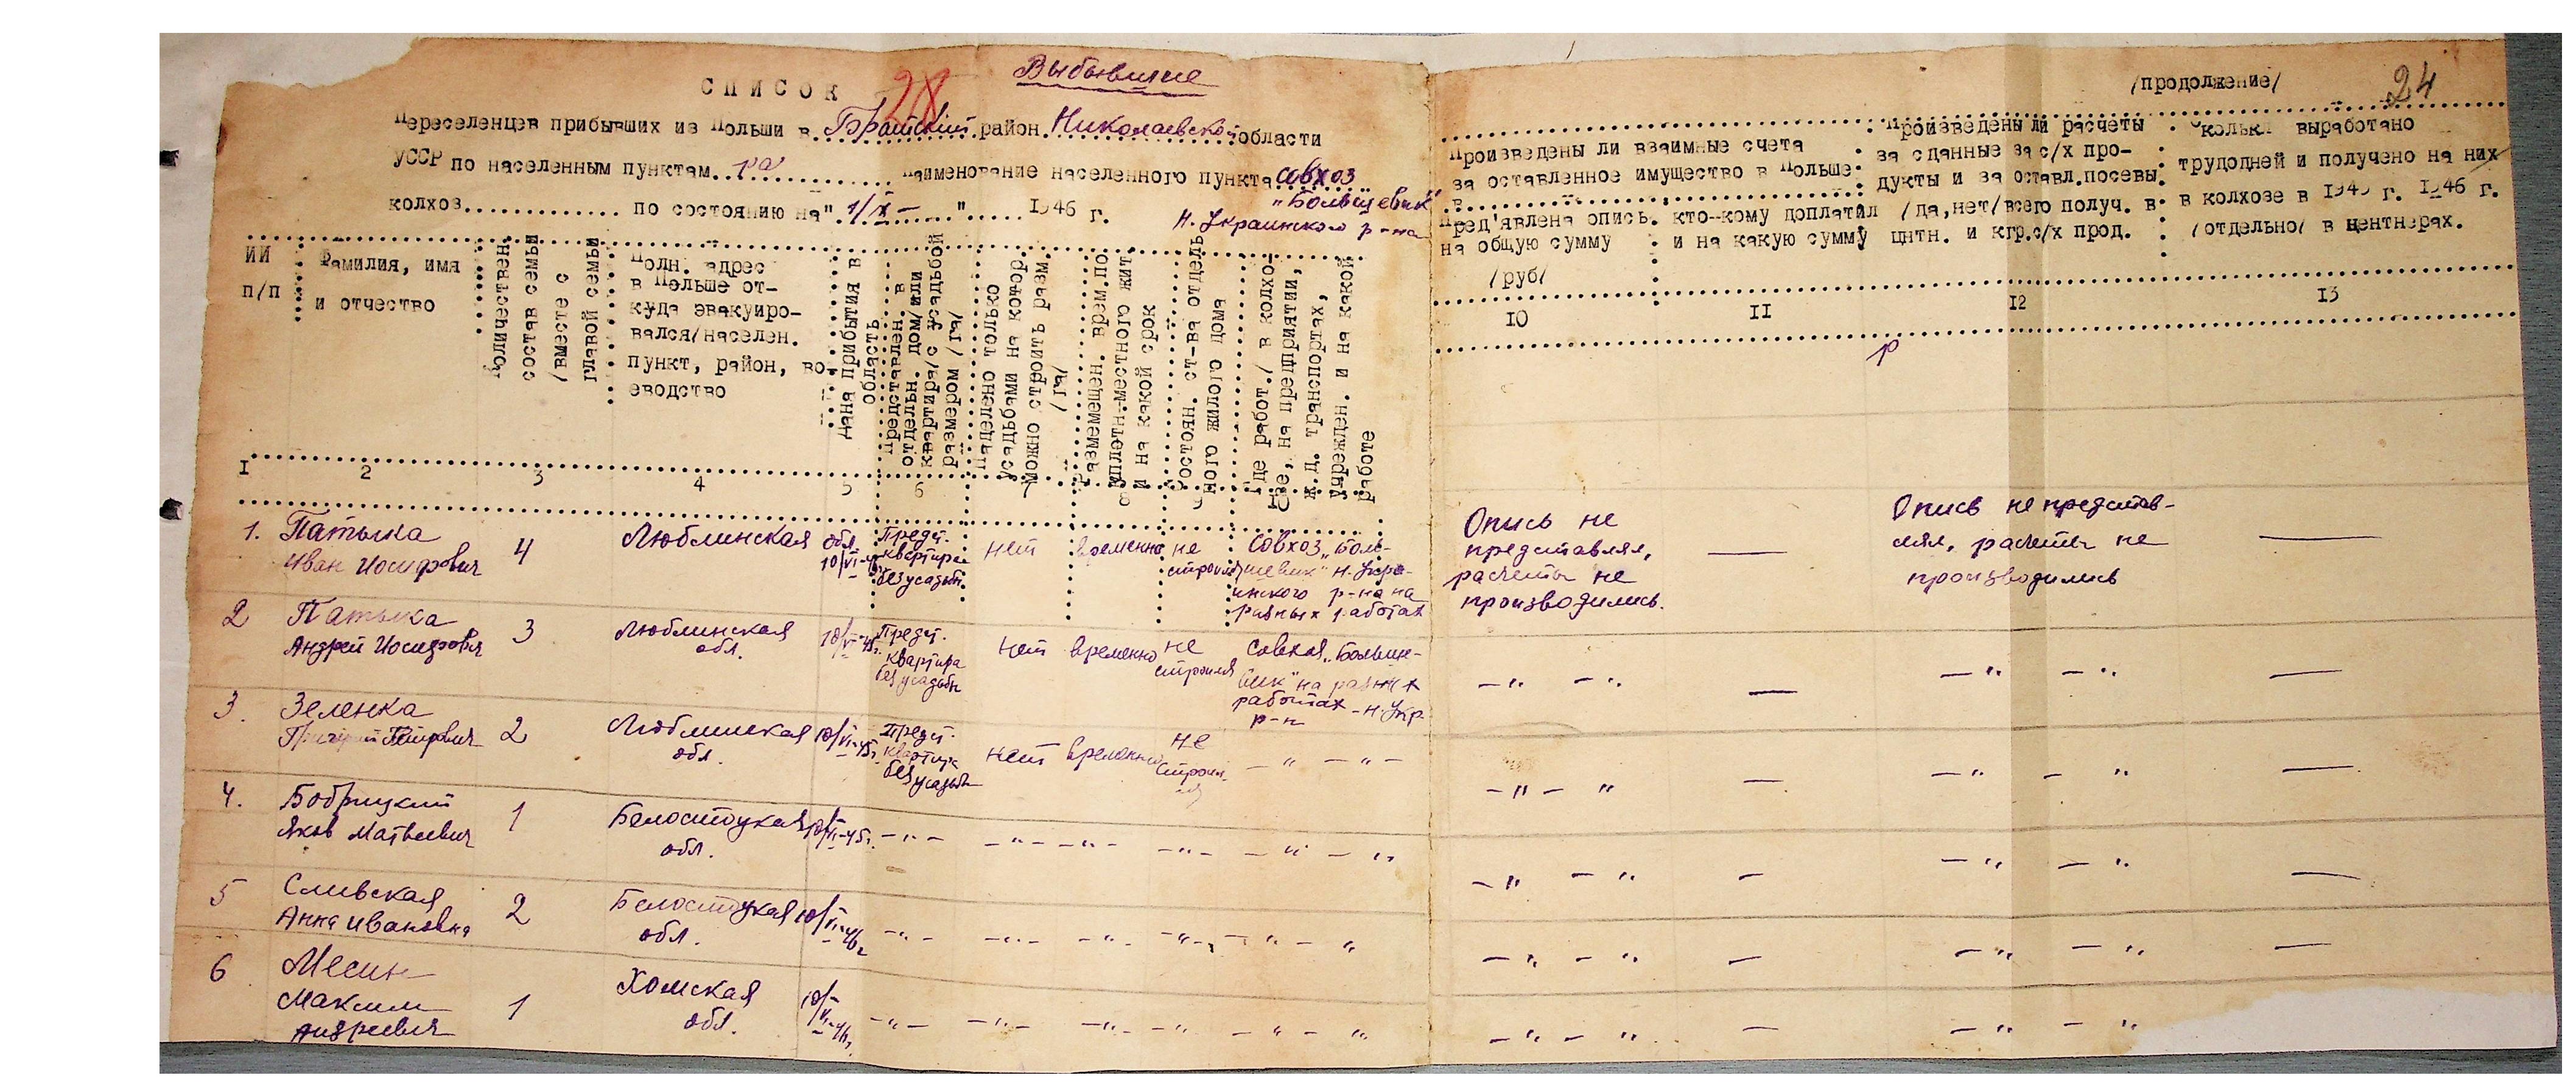 Выбывшие
СПИСОК
28
/продолжение/
24
Переселенцев прибывших из Польши в Братский район Николаевской области
УССР по населенным пунктам ра Наименование населенного пункта совхоз
"Большевик"
колхоз............... по состоянию на "1/X-" 1946 г.
Н. Украинского р-на
ИИ
п/п
Фамилия, имя
и отчество
Количествен.
состав семьи
/вместе с
главой семьи
Полн. адрес
в Польше от-
куда эвакуиро-
вался/населен.
пункт, район, во-
еводство
Дана прибытия в
область
Представлен. в
отдельн. дом/или
квартира/с усадьбой
размером /га/
Наделено только
усадьбами на котор.
можно строить разм.
/га/
Размемещен. врем. по
уплотн.местного жит.
и на какой срок
Ростоян. ст-ва отдель
ного жилого дома
Где работ./ в колхо-
зе, на предприятии,
ж.д. транспортах,
учрежден. и на какой
работе
Произведены ли взаимные счета
за оставленное имущество в Польше
Пред'явлена опись
на общую сумму
/руб/
кто-кому доплатил
и на какую сумму
Произведены ли расчеты
за сданные за с/х про-
дукты и за оставл.посевы
/да,нет/всего получ. в
цнтн. и кгр.с/х прод.
Сколько выработано
трудодней и получено на них
в колхозе в 1945 г. 1946 г.
/отдельно/ в центнерах.
I 2 3 4 5 6 7 8 9 10 11 12 13
1. Патыка
Иван Иосифович
4
Люблинская обл.
10/VI-45г.
Предст.
квартира
без усадьб.
нет
временно
не
строился
Совхоз „Боль-
шевик" Н. Укра-
инского р-на на
разных работах
Опись не
представлял,
расчеты не
производились.
—
Опись не представ-
лял, расчеты не
производились
—
2 Патыка
Андрей Иосифович
3
Люблинская
обл.
10/VI-45г.
Предст.
квартира
без усадьбы
нет
временно
не
строился
Совхоз „Больше-
вик" на разных
работах - Н. Укр.
р-н
—"— —"
—
—" —"
—
3. Зеленка
Григорий Петрович
2
Люблинская
обл.
10/VI-45г.
Предст.
квартира
без усадьбы
нет
временно
не
строил-
ся
—"—"—
—"— "
—
—" — "
—
4. Бобрицкий
Яков Матвеевич
1
Белостоцкая
обл.
10/VI-45г.
—"— —"— —"— —"— —"— "
—" —"
—
—" —"
—
5 Сливская
Анна Ивановна
2
Белостоцкая
обл.
—"— —"— —"— —"— —"— "
—" —"
—
—" —"
—
6 Месин
Максим
Андреевич
1
Холмская
обл.
—"— —"— —"— —"— —"— "
—"— "
—
—"— "